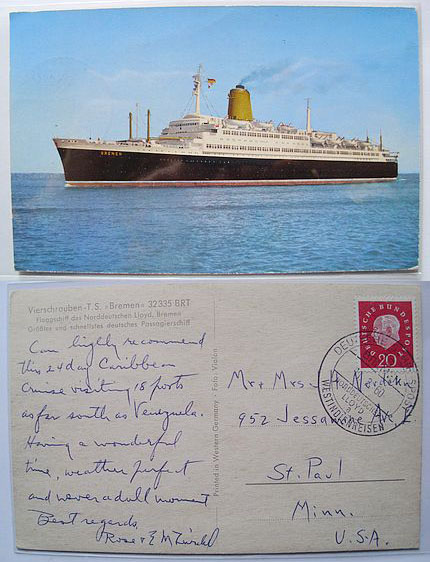 BREMEN
Vierschrauben-T.S. »Bremen« 32335 BRT
Flaggschiff des Norddeutschen Lloyd, Bremen
Größtes und schnellstes deutsches Passagierschiff
Can highly recommend
this 24 day Caribbean
Cruise visiting 18 ports
as far south as Venezuela.
Having a wonderful
time, weather perfect
and never a dull moment
Best regards,
Rose & E M
Printed in Western Germany Foto
DEUTSCHE BUNDESPOST
20
LLOYD
WESTINDIENREISEN
Mr & Mrs
952 Ave
St. Paul
Minn.
U.S.A.